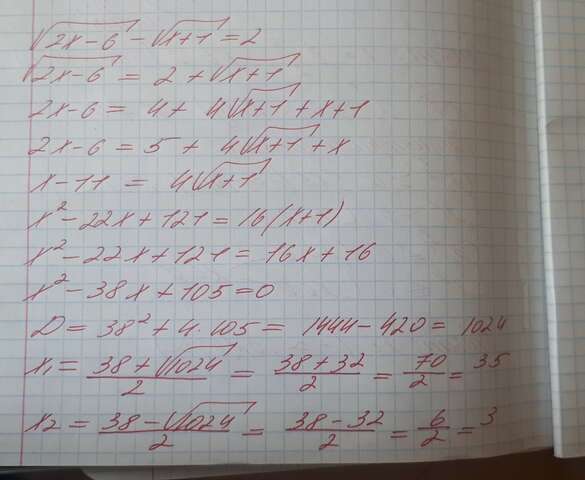 √(2x-6) - √(x+1) = 2
√(2x-6) = 2 + √(x+1)
2x-6 = 4 + 4√(x+1) + x+1
2x-6 = 5 + 4√(x+1) + x
x-11 = 4√(x+1)
x² - 22x + 121 = 16(x+1)
x² - 22x + 121 = 16x + 16
x² - 38x + 105 = 0
D = 38² + 4·105 = 1444 - 420 = 1024
x₁ = (38 + √1024)/2 = (38 + 32)/2 = 70/2 = 35
x₂ = (38 - √1024)/2 = (38 - 32)/2 = 6/2 = 3